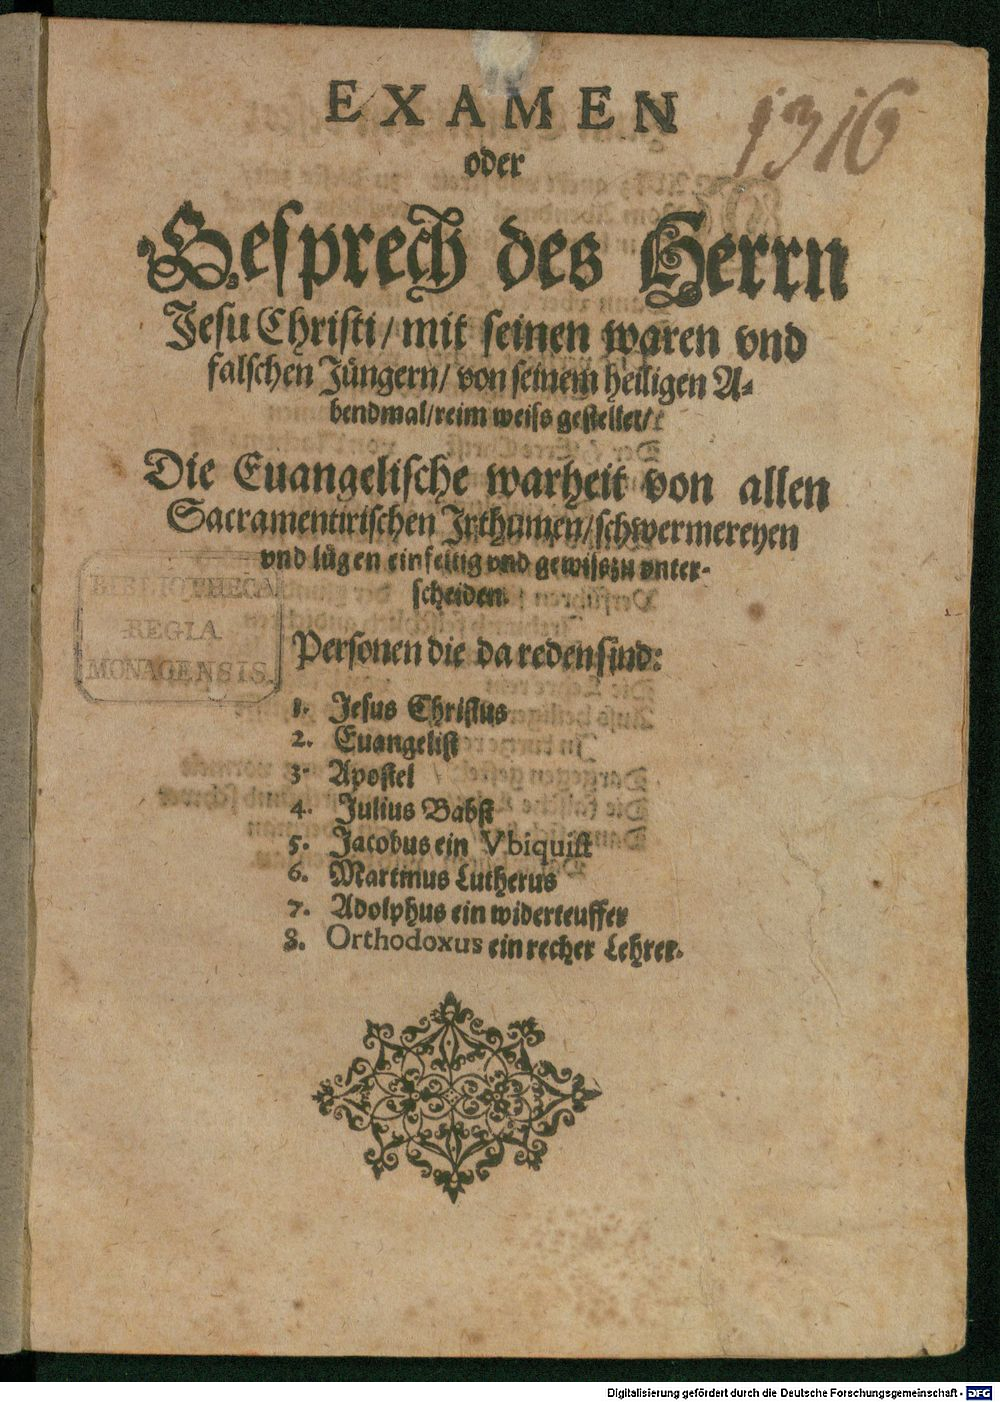 EXAMEN
1316
oder
Gesprech des Herrn
Jesu Christi / mit seinen waren vnd
falschen Jüngern / von seinem heiligen A-
bendmal / reim weiss gestellet /
Die Euangelische warheit von allen
Sacramentirischen Irthumen / schwermereyen
vnd lügen einfeltig vnd gewiss zu vnter-
scheiden.
BIBLIOTHECA
REGIA
MONACENSIS.
Personen die da reden sind:
1. Jesus Christus
2. Euangelist
3. Apostel
4. Julius Babst
5. Jacobus ein Vbiquist
6. Martinus Lutherus
7. Adolphus ein widerteuffer
8. Orthodoxus ein recher Lehrer.
Digitalisierung gefördert durch die Deutsche Forschungsgemeinschaft - DFG